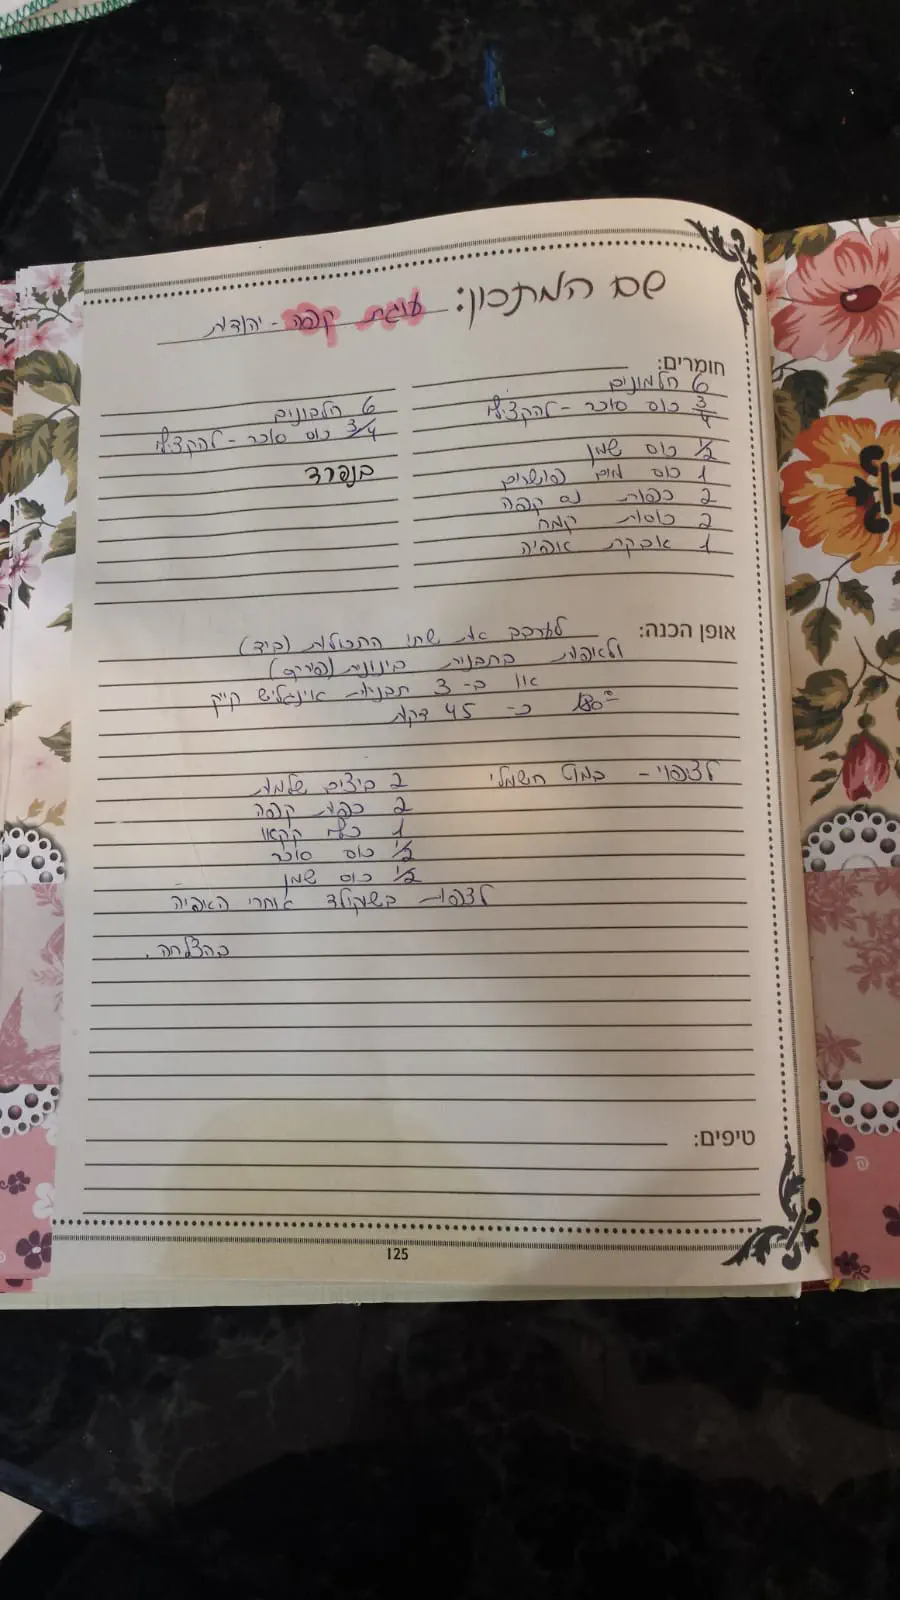 שם המתכון: עוגת קפה - יהודית
חומרים:
6 חלמונים
3/4 כוס סוכר - להקציף
1/2 כוס שמן
1 כוס מים פושרים
2 כפות נס קפה
2 כוסות קמח
1 אבקת אפיה
6 חלבונים
3/4 כוס סוכר - להקציף
בנפרד
אופן הכנה: לערבב את שתי התכולות (ביד)
ולאפות בתבנית בינונית
או ב- 3 תבניות אינגליש קייק
180° כ- 45 דקות
לציפוי - במוט חשמלי
2 ביצים שלמות
2 כפות קפה
1 כף קקאו
1/2 כוס סוכר
1/2 כוס שמן
לצפות בשוקולד אחרי האפיה
בהצלחה.
טיפים:
125